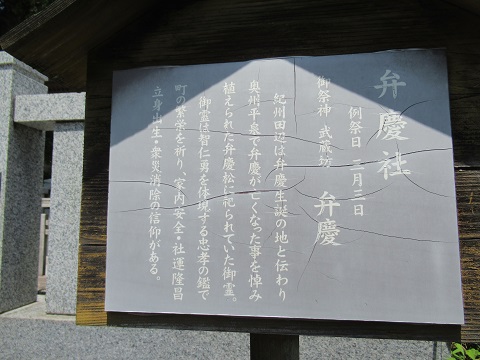 弁慶社
例祭日 三月三日
御祭神 武蔵坊 弁慶
紀州田辺は弁慶生誕の地と伝わり
奥州平泉で弁慶が亡くなった事を悼み
植えられた弁慶松に祀られていた御霊。
御霊は智仁勇を体現する忠孝の鑑で
町の繁栄を祈り、家内安全・社運隆昌
立身出生・衆災消除の信仰がある。